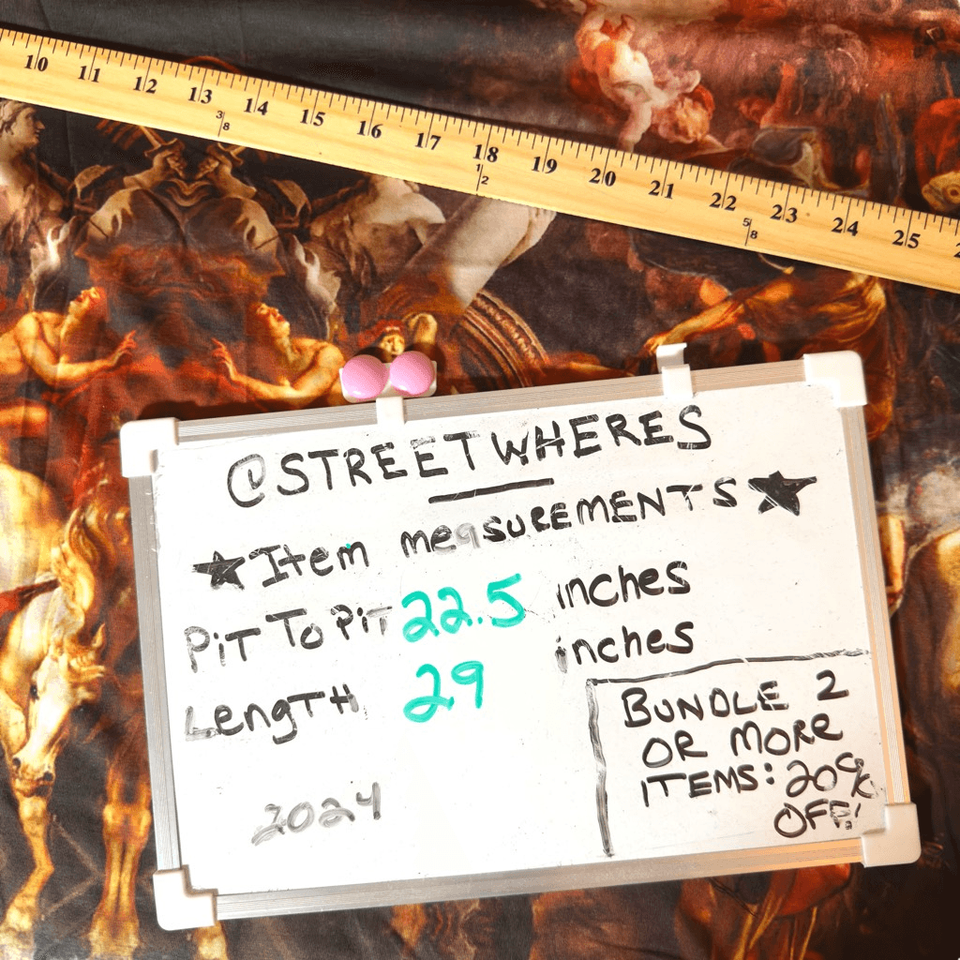 10 11 12 13 14 15 16 17 18 19 20 21 22 23 24 25
3/8 1/2 5/8
@STREETWHERES
★Item measurements★
PiT To PiT 22.5 inches
Length 29 inches
BUNDLE 2
OR MORE
ITEMS: 20%
OFF!
2024